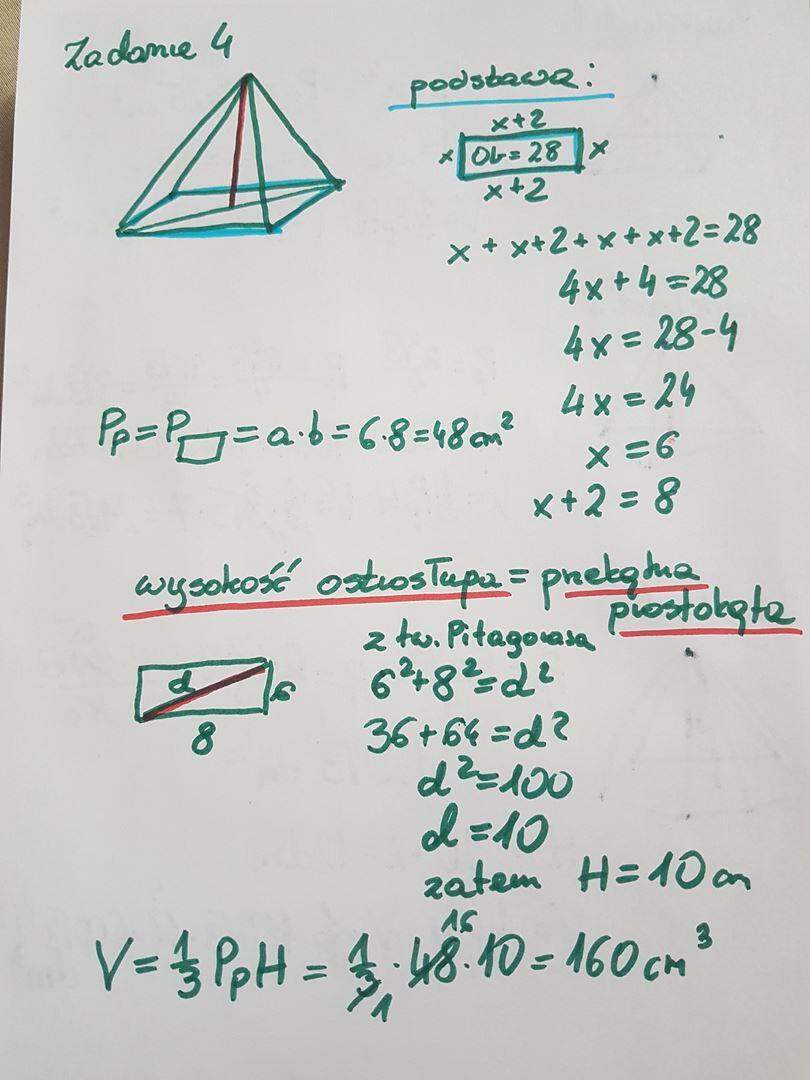 Zadanie 4
podstawa:
x+2
x Ob=28 x
x+2
x + x+2+x+x+2=28
4x+4=28
4x=28-4
4x=24
x=6
x+2=8
Pp=P▱=a·b=6·8=48cm²
wysokość ostrosłupa = przekątna
prostokąta
z tw. Pitagorasa
6²+8²=d²
36+64=d²
d²=100
d=10
zatem H=10cm
d 6
8
16
V=1/3 PpH = 1/3·48·10=160cm³
1